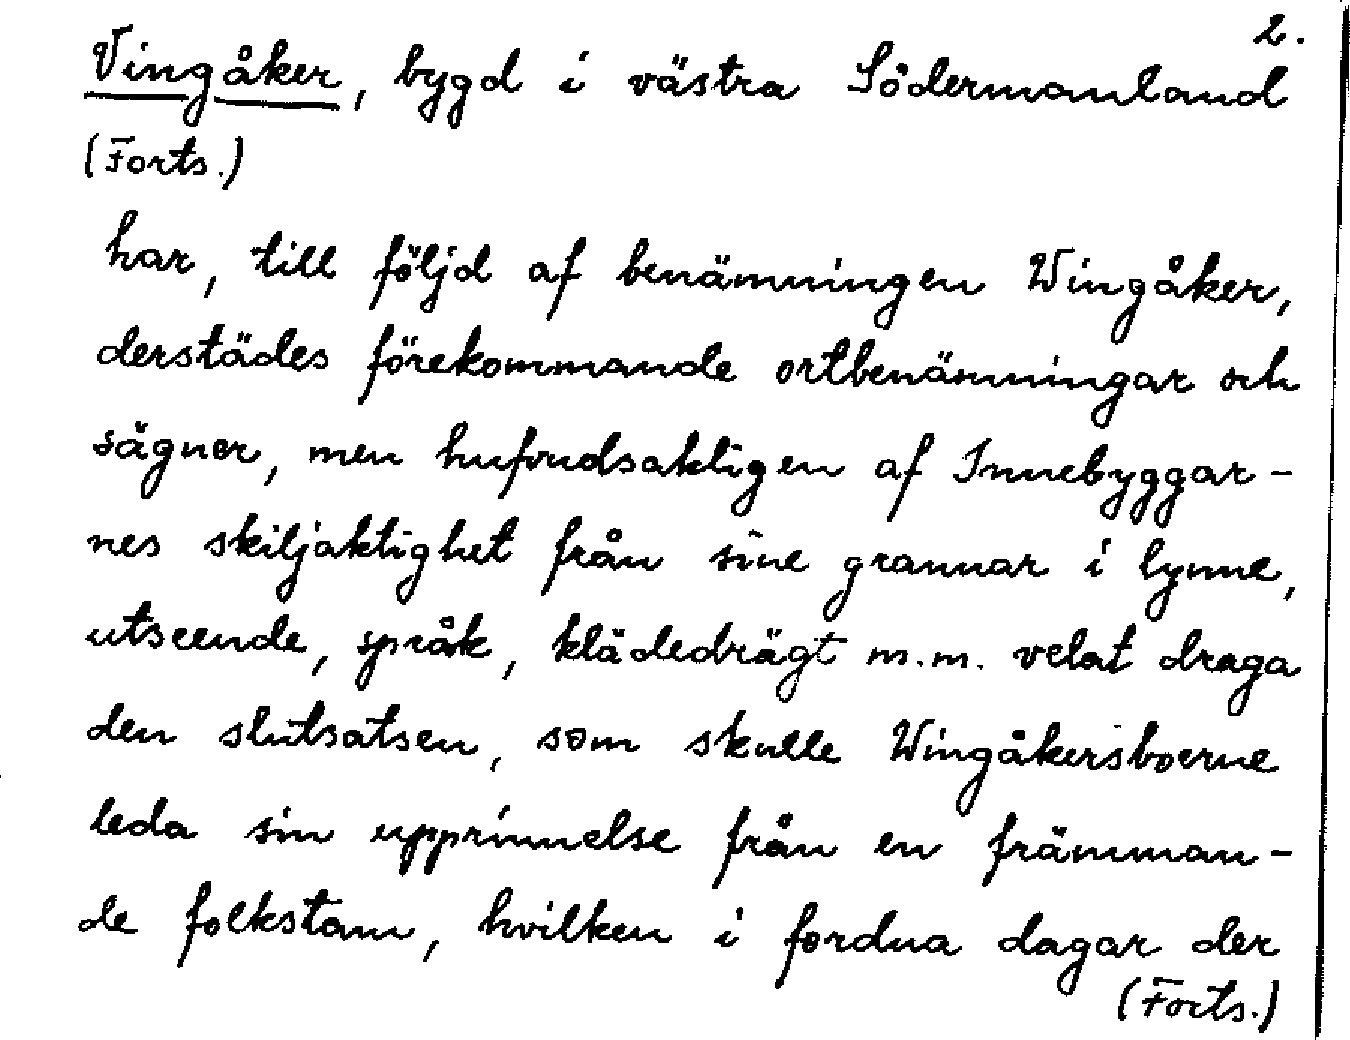 2.
Vingåker, bygd i västra Södermanland
(Forts.)
har, till följd af benämningen Wingåker,
derstädes förekommande ortbenämningar och
sägner, men hufvudsakligen af Innebyggar-
nes skiljaktighet från sine grannar i lynne,
utseende, språk, klädedrägt m.m. velat draga
den slutsatsen, som skulle Wingåkersboerne
leda sin upprinnelse från en främman-
de folkstam, hvilken i fordna dagar der
(Forts.)